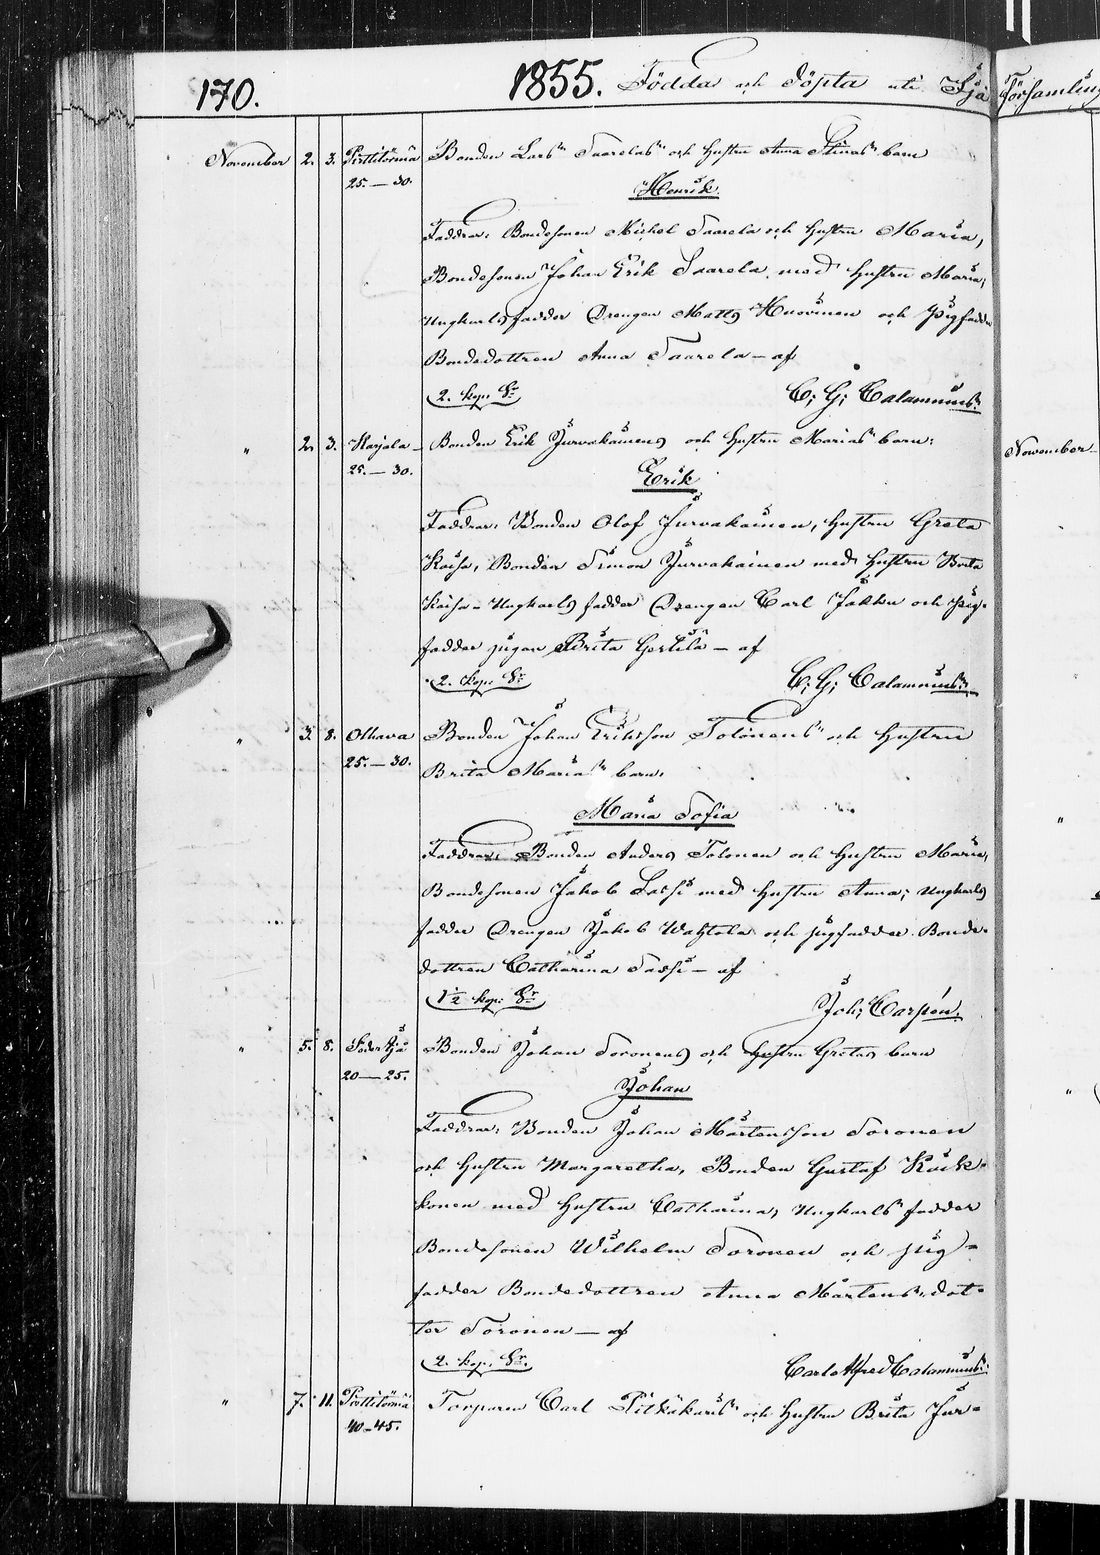 170. 1855. Födda och Döpta uti Ijå Församling
November 2. 3. Pirttitörmä Bonden Lars Taarelas och hustru Anna Stinas barn
25.—30. Henrik.
Faddrar: Bondesonen Michel Taarela och hustru Maria,
Bondesonen Johan Erik Taarela med hustru Maria,
Ungkarlsfadder Drengen Matts Huovinen och Pigfadder
Bondedottren Anna Taarela — af
2. kop. Sr C. G. Calamnius.
" 2. 3. Karjala Bonden Erik Jurvakainens och hustru Marias barn:
25.—30. Erik
Faddrar: Bonden Olof Jurvakainen, hustru Greta
Kaisa, Bonden Simon Jurvakainen med hustru Brita
Kaisa - Ungkarls fadder Drengen Carl Jakku och Pig-
fadder pigan Brita Gertilä — af
2. kop. Sr C. G. Calamnius.
November
" 3. 8. Olhava Bonden Johan Eriksson Tolonens och hustru
25.—30. Brita Marias barn.
Maria Sofia
Faddrar: Bonden Anders Tolonen och hustru Maria,
Bondesonen Jakob Lassi med hustru Anna; Ungkarls
fadder Drengen Jakob Wahtola och pigfadder Bonde-
dottren Catharina Lassi — af
1½ kop. Sr Joh. Carpén.
" 5. 8. Söder Ijå Bonden Johan Soronens och hustru Gretas barn
20—25. Johan
Faddrar: Bonden Johan Mårtensson Soronen
och hustru Margaretha, Bonden Gustaf Kuik-
konen med hustru Catharina, Ungkarls fadder
Bondesonen Wilhelm Soronen och pig-
fadder Bondedottren Anna Mårtens dot-
ter Soronen — af
2. kop. Sr. Carl Alfred Calamnius.
" 7. 11. Pirttitörmä Torparen Carl Pitkäkaris och hustru Brita Jur-
40—45.